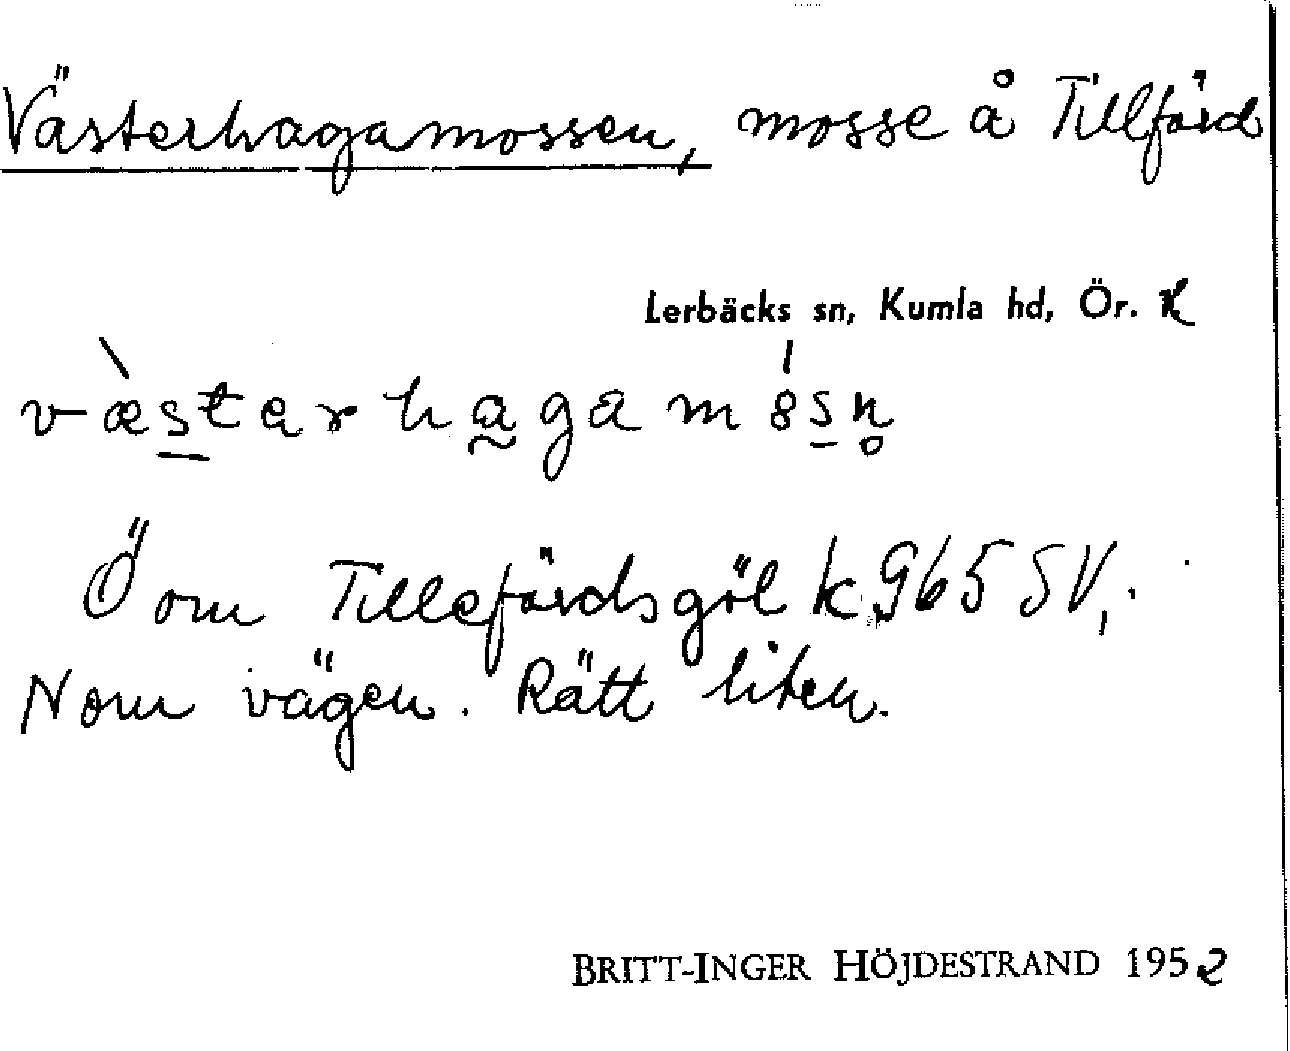 Västerhagamossen, mosse å Tillförd
Lerbäcks sn, Kumla hd, Ör.
Ö om Tillefördsgöl k 965 SV,
N om vägen. Rätt liten.
BRITT-INGER HÖJDESTRAND 1952